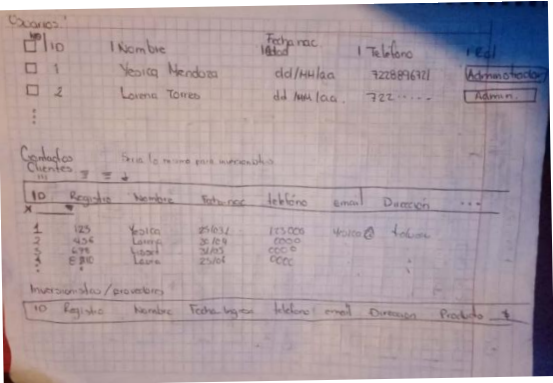 Usuarios:
ID Nombre Fecha nac Teléfono Rol
Edad
1 Yesica Mendoza dd/MM/aa 7228896721 Administrador
2 Lorena Torres dd/MM/aa. 722..... Admin.
Contactos Seria lo mismo para inversionistas
Clientes
ID Registro Nombre Fecha nac teléfono email Dirección ...
1 123 Yesica
2 456 Lorena 0000
3 678 0000
4 Laura 0000
Inversionistas/proveedores
ID Registro Nombre Fecha Ingreso teléfono email Dirección Producto